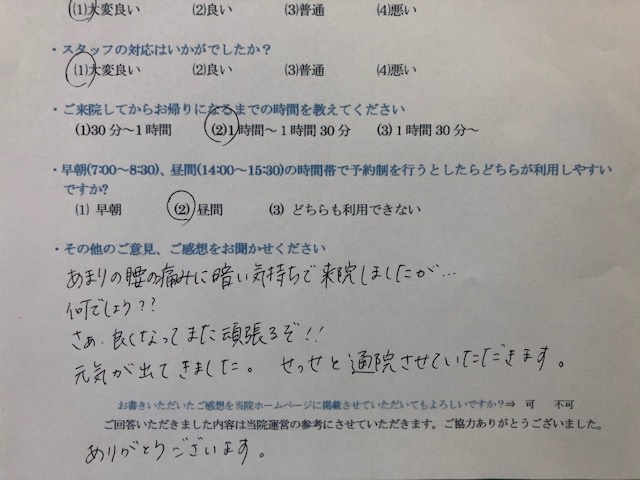 (1)大変良い (2)良い (3)普通 (4)悪い
・スタッフの対応はいかがでしたか？
(1)大変良い (2)良い (3)普通 (4)悪い
・ご来院してからお帰りになるまでの時間を教えてください
(1)30分～1時間 (2)1時間～1時間30分 (3)1時間30分～
・早朝(7:00～8:30)、昼間(14:00～15:30)の時間帯で予約制を行うとしたらどちらが利用しやすい
ですか?
(1) 早朝 (2) 昼間 (3) どちらも利用できない
・その他のご意見、ご感想をお聞かせください
あまりの腰の痛みに暗い気持ちで来院しましたが…
何でしょう??
さぁ、良くなってまた頑張るぞ!!
元気が出てきました。 せっせと通院させていただきます。
お書きいただいたご感想を当院ホームページに掲載させていただいてもよろしいですか？⇒ 可 不可
ご回答いただきました内容は当院運営の参考にさせていただきます。ご協力ありがとうございました。
ありがとうございます。